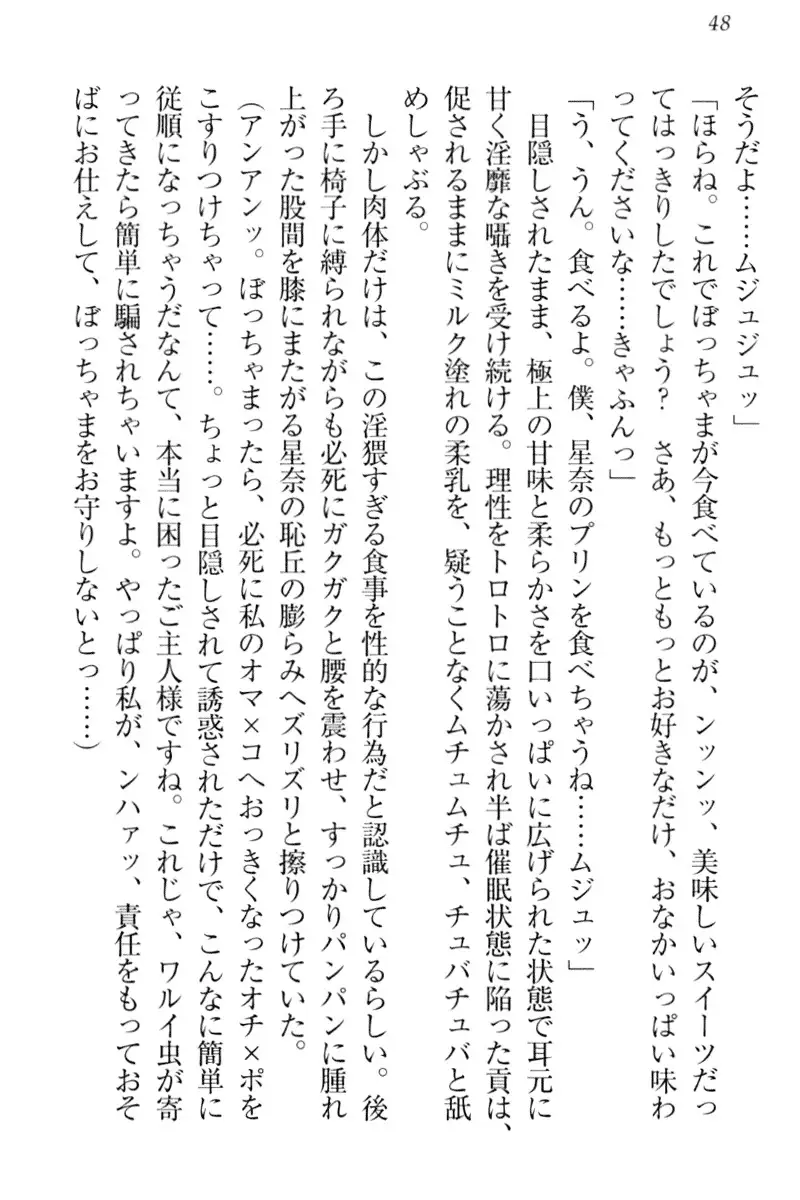 48
そうだよ……ムジュジュッ」
「ほらね。これでぼっちゃまが今食べているのが、ンッンッ、美味しいスイーツだっ
てはっきりしたでしょう？　さあ、もっともっとお好きなだけ、おなかいっぱい味わ
ってくださいな……きゃふんっ」
「う、うん。食べるよ。僕、星奈のプリンを食べちゃうね……ムジュッ」
目隠しされたまま、極上の甘味と柔らかさを口いっぱいに広げられた状態で耳元に
甘く淫靡な囁きを受け続ける。理性をトロトロに蕩かされ半ば催眠状態に陥った貢は、
促されるままにミルク塗れの柔乳を、疑うことなくムチュムチュ、チュバチュバと舐
めしゃぶる。
しかし肉体だけは、この淫猥すぎる食事を性的な行為だと認識しているらしい。後
ろ手に椅子に縛られながらも必死にガクガクと腰を震わせ、すっかりパンパンに腫れ
上がった股間を膝にまたがる星奈の恥丘の膨らみへズリズリと擦りつけていた。
（アンアンッ。ぼっちゃまったら、必死に私のオマ×コへおっきくなったオチ×ポを
こすりつけちゃって……。ちょっと目隠しされて誘惑されただけで、こんなに簡単に
従順になっちゃうだなんて、本当に困ったご主人様ですね。これじゃ、ワルイ虫が寄
ってきたら簡単に騙されちゃいますよ。やっぱり私が、ンハァッ、責任をもっておそ
ばにお仕えして、ぼっちゃまをお守りしないとっ……）